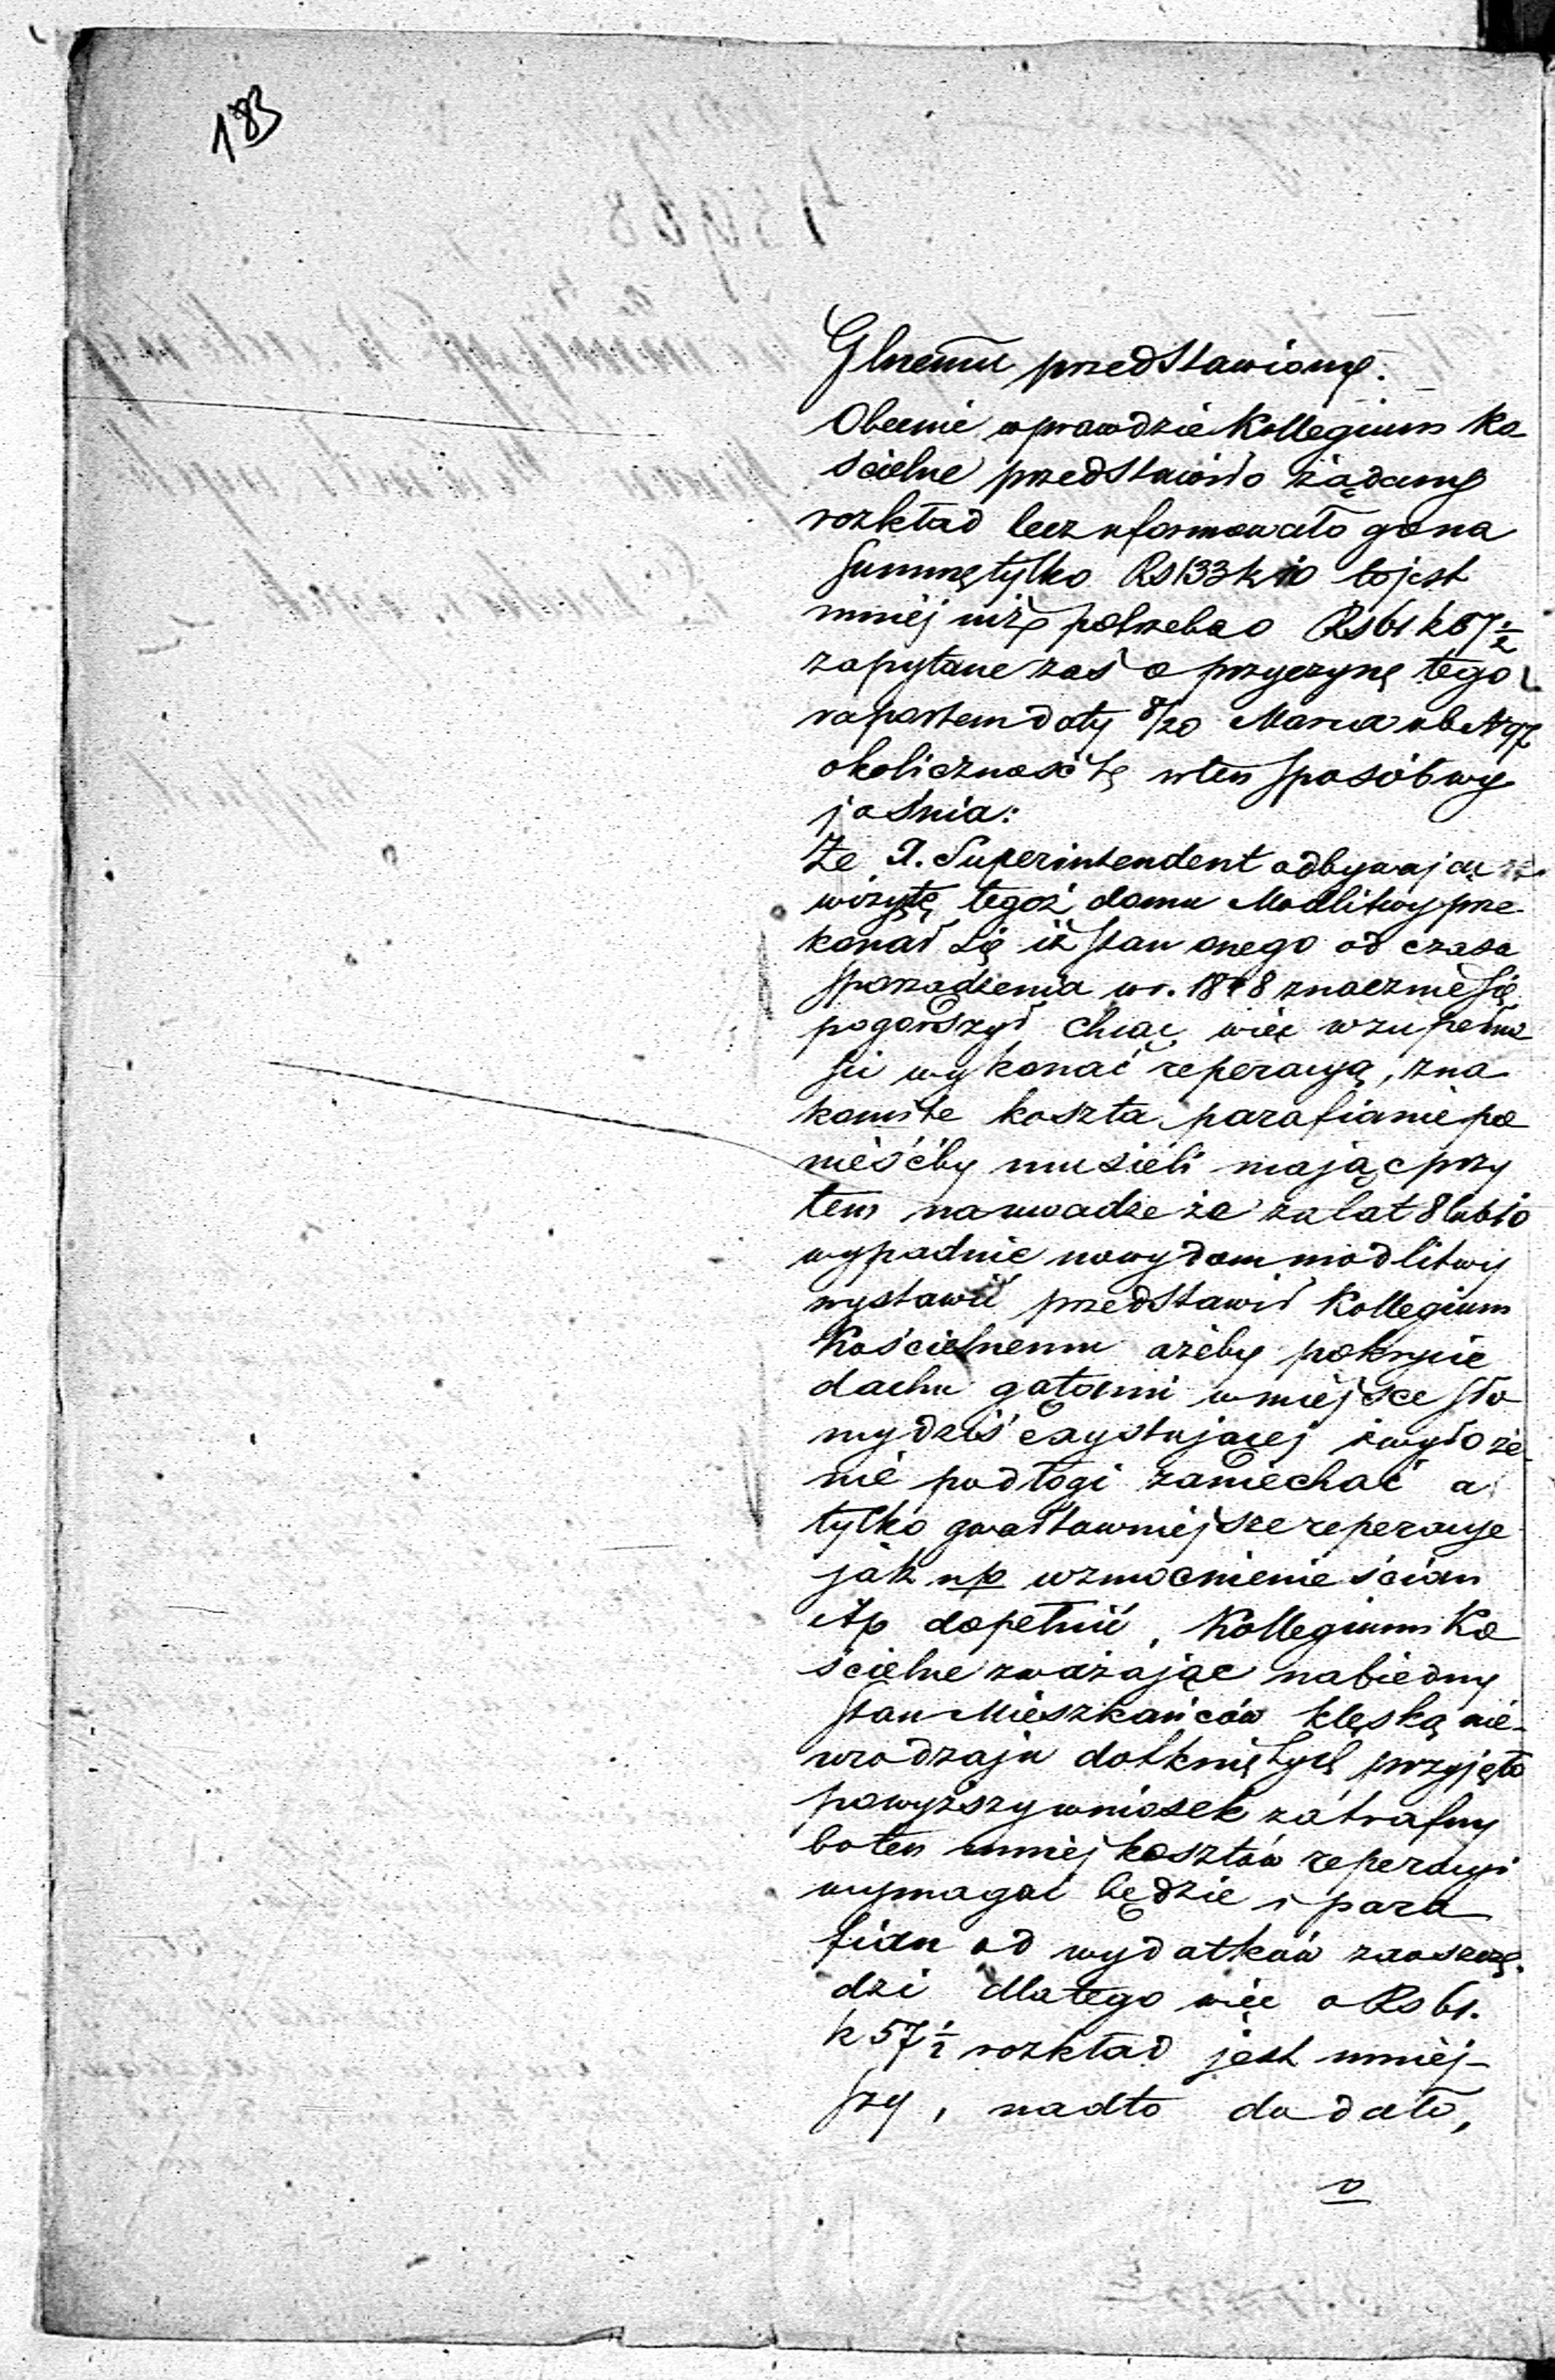 183
Glnemu przedstawiony.
Obecnie wprawdzie Kollegium Ko
ścielne przedstawiło żądany
rozkład lecz uformowało gona
Summę tylko Rs 133 k 10 tojest
mniej niż potrzeba o Rs 61 k 57 1/2
zapytane zaś o przyczynę tego
raportem daty 8/20 Marca ub N 97
okoliczność tę wten sposób wy
jaśnia:
Że X. Superintendent odbywając
wizytę tegoż domu Modlitwy prze
konał się iż stan onego od czasu
sporządzenia w r. 1848 znacznie się
pogorszył chcąc więc wzupełno
ści wykonać reperacyą, zna
komite koszta parafianie po
nieśćby musieli mając przy
tem nauwadze że zalat 8 lub 10
wypadnie nowy dom modlitwy
wystawić przedstawił Kollegium
Kościelnemu ażeby pokrycie
dachu gątami wmiejsce sło
my dziś exystującej i wyłoże
nie podłogi zaniechać a
tylko gwałtowniejsze reperacye
jak np wzmocnienie ścian
itp dopełnić, Kollegium Ko
ścielne zważając nabiedny
stan Mieszkańców klęską nie-
urodzaju dotkniętych przyjęło
powyższy wniosek zatrafny
boten mniej kosztów reperacyi
wymagać będzie i para
fian od wydatków zaoszczę
dzi dlatego więc o Rs 61.
k 57 1/2 rozkład jest mniej-
szy, nadto dodało,